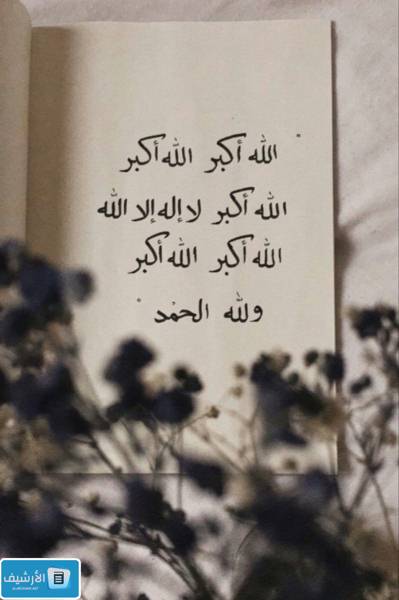 الله أكبر الله أكبر
الله أكبر لا إله إلا الله
الله أكبر الله أكبر
ولله الحمد
الأرشيف